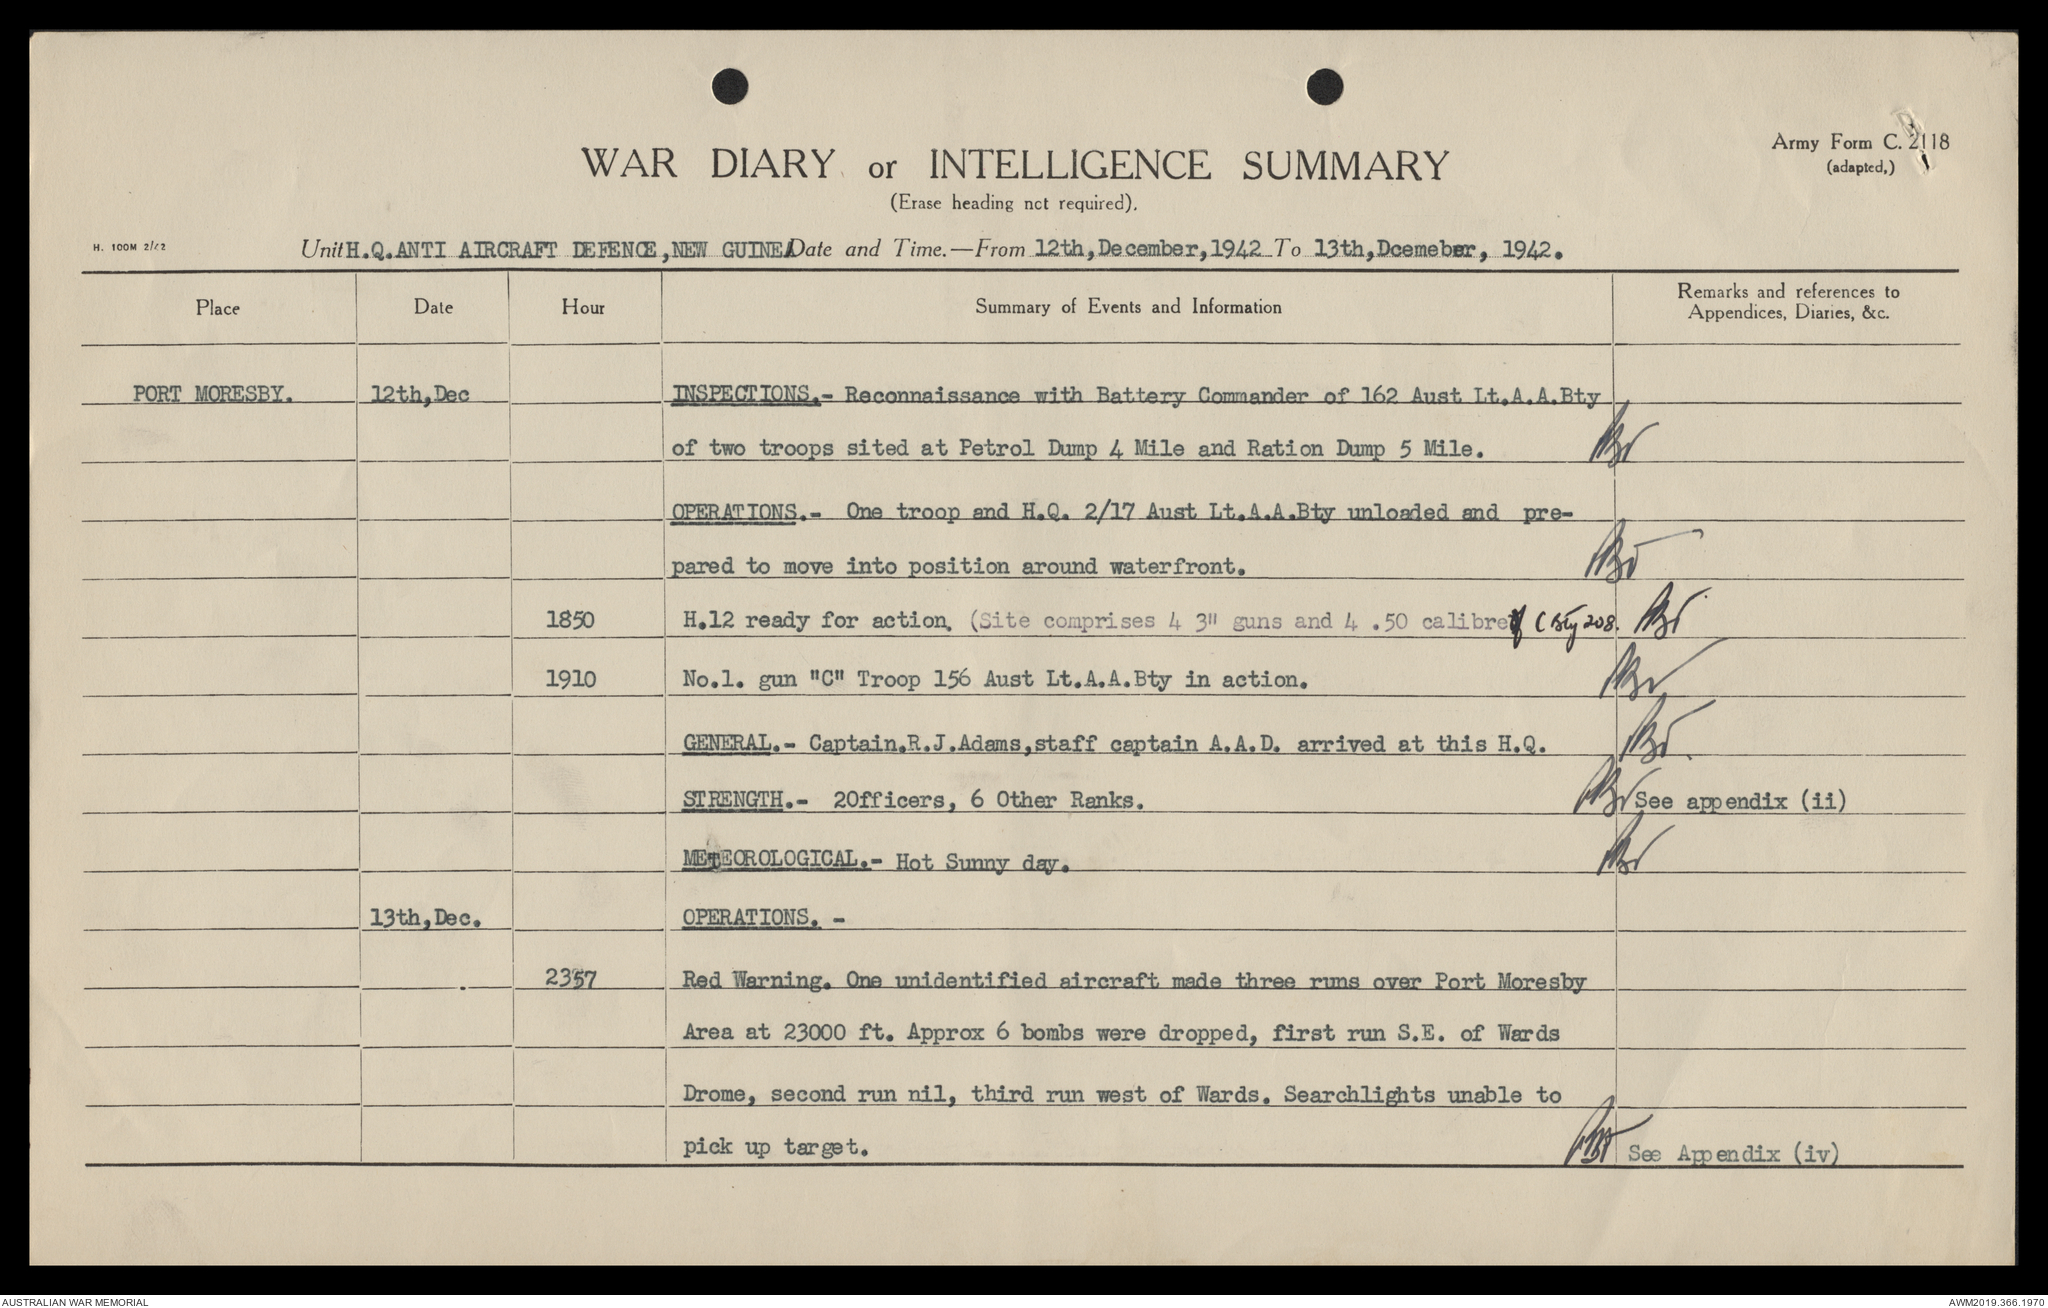 Army Form C. 2118
(adapted,)
WAR DIARY or INTELLIGENCE SUMMARY
(Erase heading not required).
H. 100M 2/42
Unit H.Q.ANTI AIRCRAFT DEFENCE,NEW GUINEA Date and Time.—From 12th,December,1942 To 13th,Dcemeber, 1942.
Place Date Hour Summary of Events and Information Remarks and references to
Appendices, Diaries, &c.
PORT MORESBY. 12th,Dec INSPECTIONS.- Reconnaissance with Battery Commander of 162 Aust Lt.A.A.Bty
of two troops sited at Petrol Dump 4 Mile and Ration Dump 5 Mile.
OPERATIONS.- One troop and H.Q. 2/17 Aust Lt.A.A.Bty unloaded and pre-
pared to move into position around waterfront.
1850 H.12 ready for action. (Site comprises 4 3" guns and 4 .50 calibre C Bty 208.
1910 No.1. gun "C" Troop 156 Aust Lt.A.A.Bty in action.
GENERAL.- Captain.R.J.Adams,staff captain A.A.D. arrived at this H.Q.
STRENGTH.- 2Officers, 6 Other Ranks. See appendix (ii)
METEOROLOGICAL.- Hot Sunny day.
13th,Dec. OPERATIONS. -
2357 Red Warning. One unidentified aircraft made three runs over Port Moresby
Area at 23000 ft. Approx 6 bombs were dropped, first run S.E. of Wards
Drome, second run nil, third run west of Wards. Searchlights unable to
pick up target. See Appendix (iv)
AUSTRALIAN WAR MEMORIAL AWM2019.366.1970